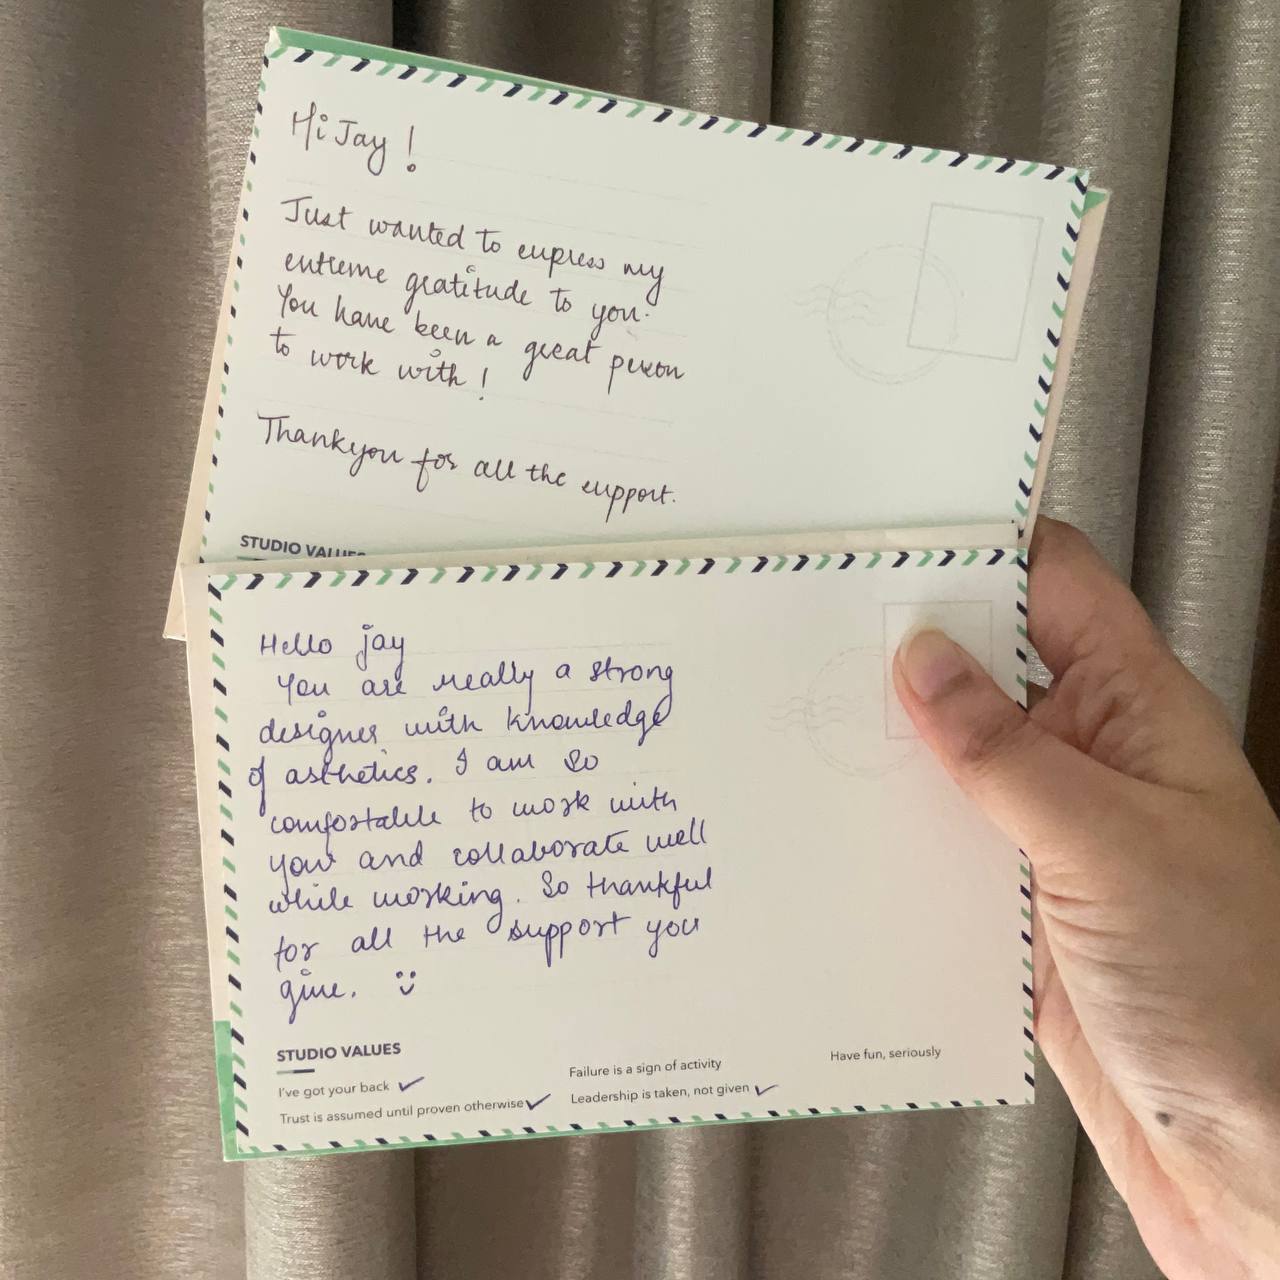 Hi Jay !
Just wanted to express my
extreme gratitude to you.
You have been a great person
to work with !
Thankyou for all the support.
STUDIO VALUES
Hello jay
You are really a strong
designer with knowledge
of asthetics. I am so
comfortable to work with
your and collaborate well
while working. So thankful
for all the support you
give. :)
STUDIO VALUES
I've got your back ✓
Trust is assumed until proven otherwise ✓
Failure is a sign of activity
Leadership is taken, not given ✓
Have fun, seriously